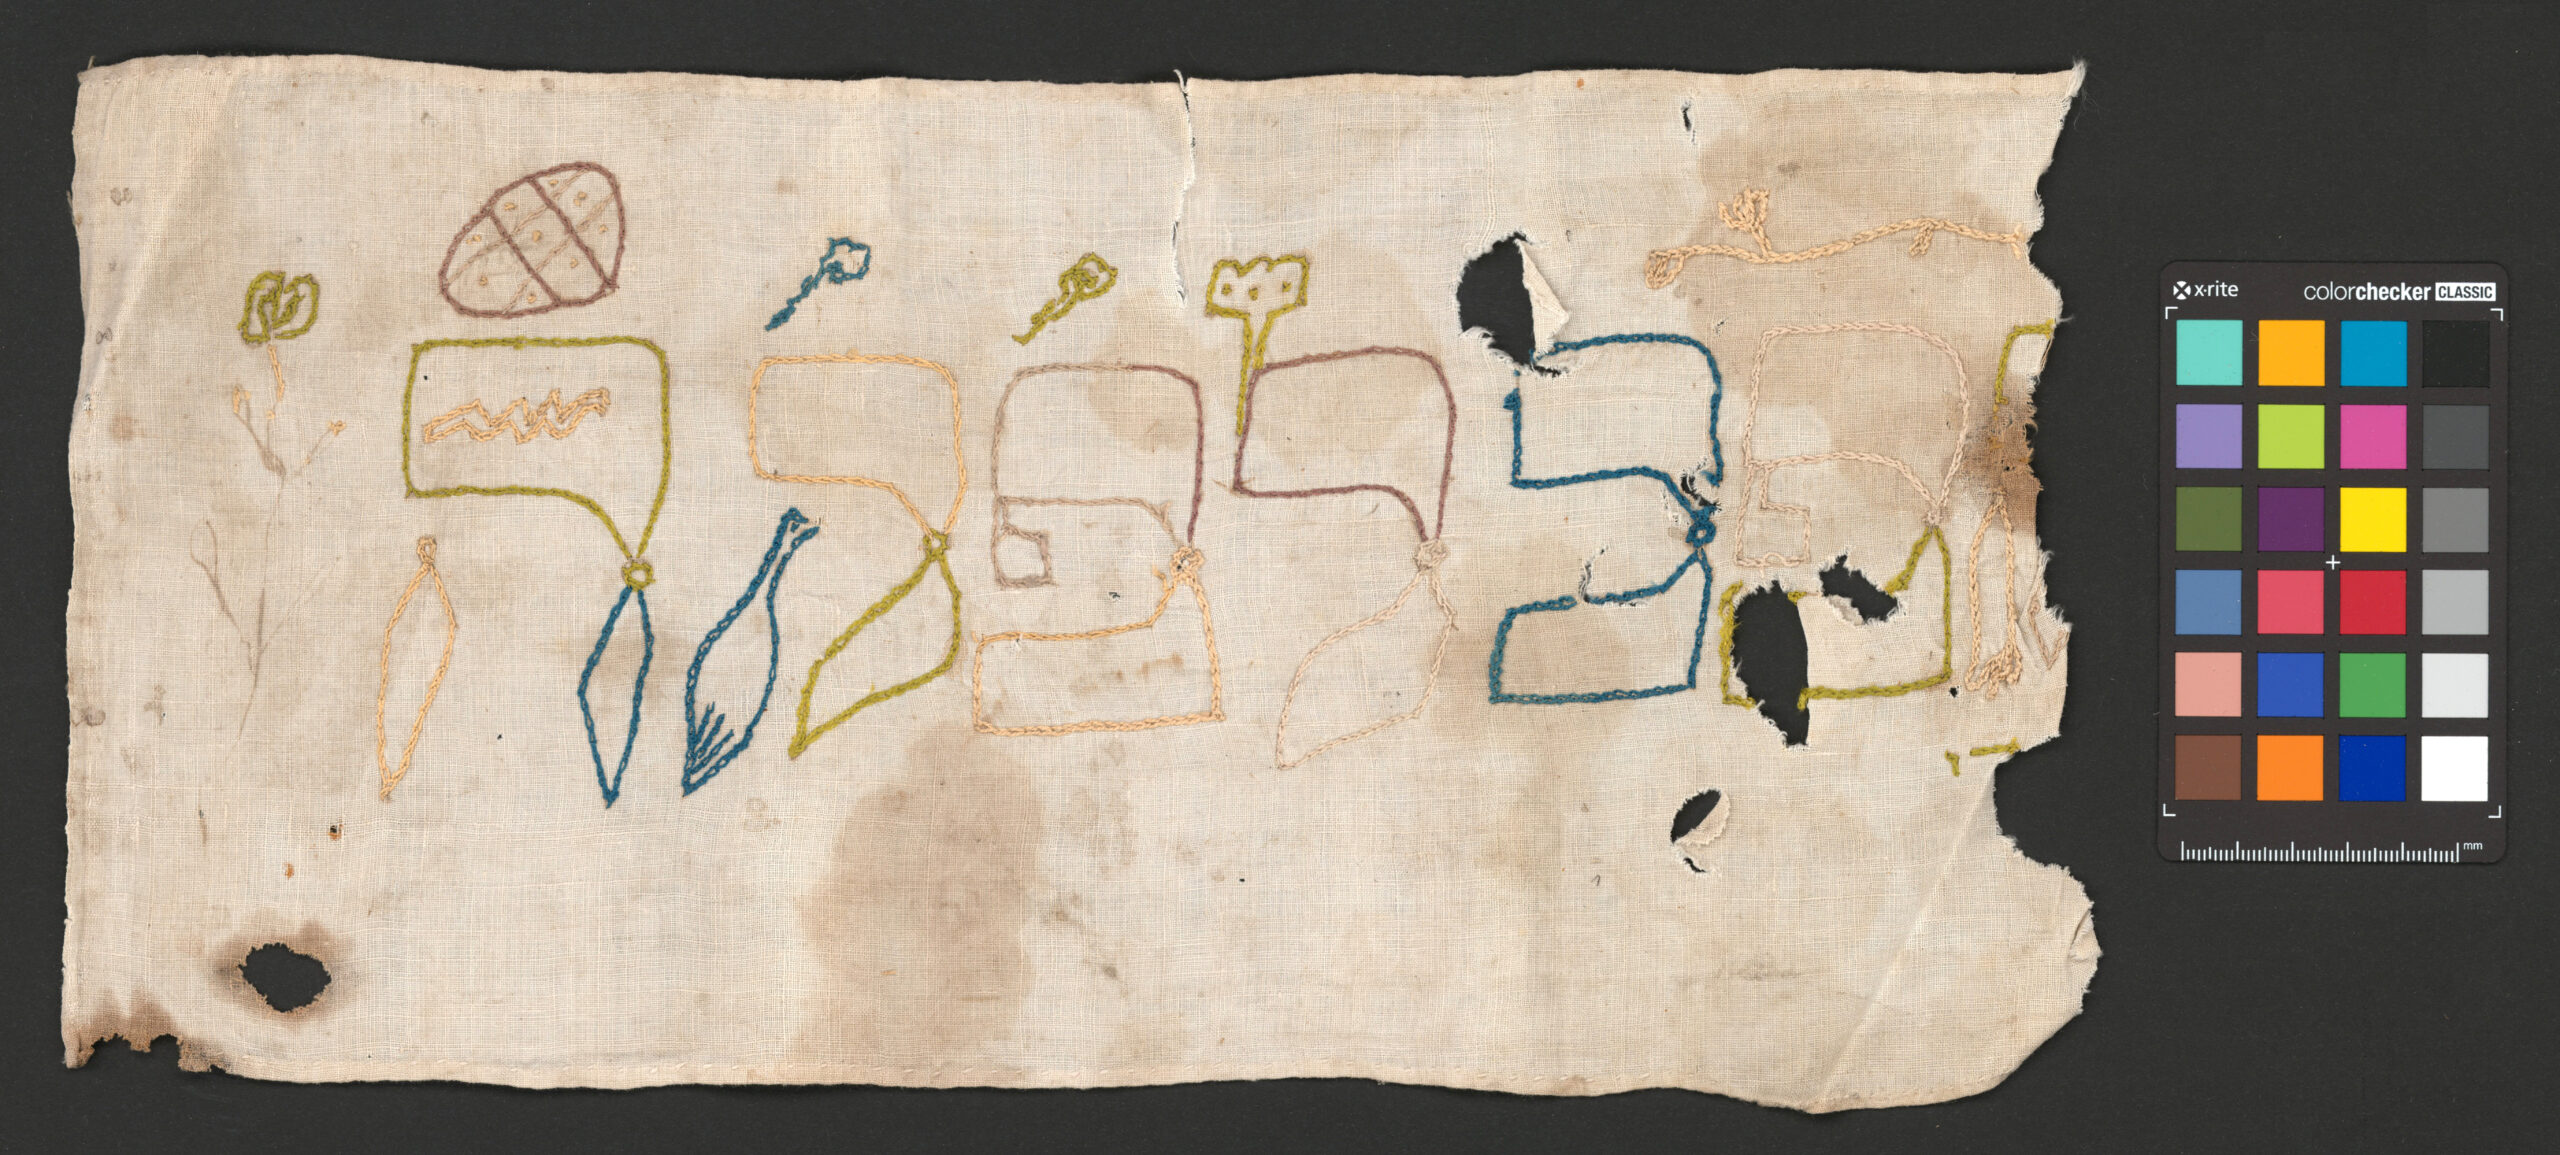 פברפהה
x·rite colorchecker CLASSIC
mm